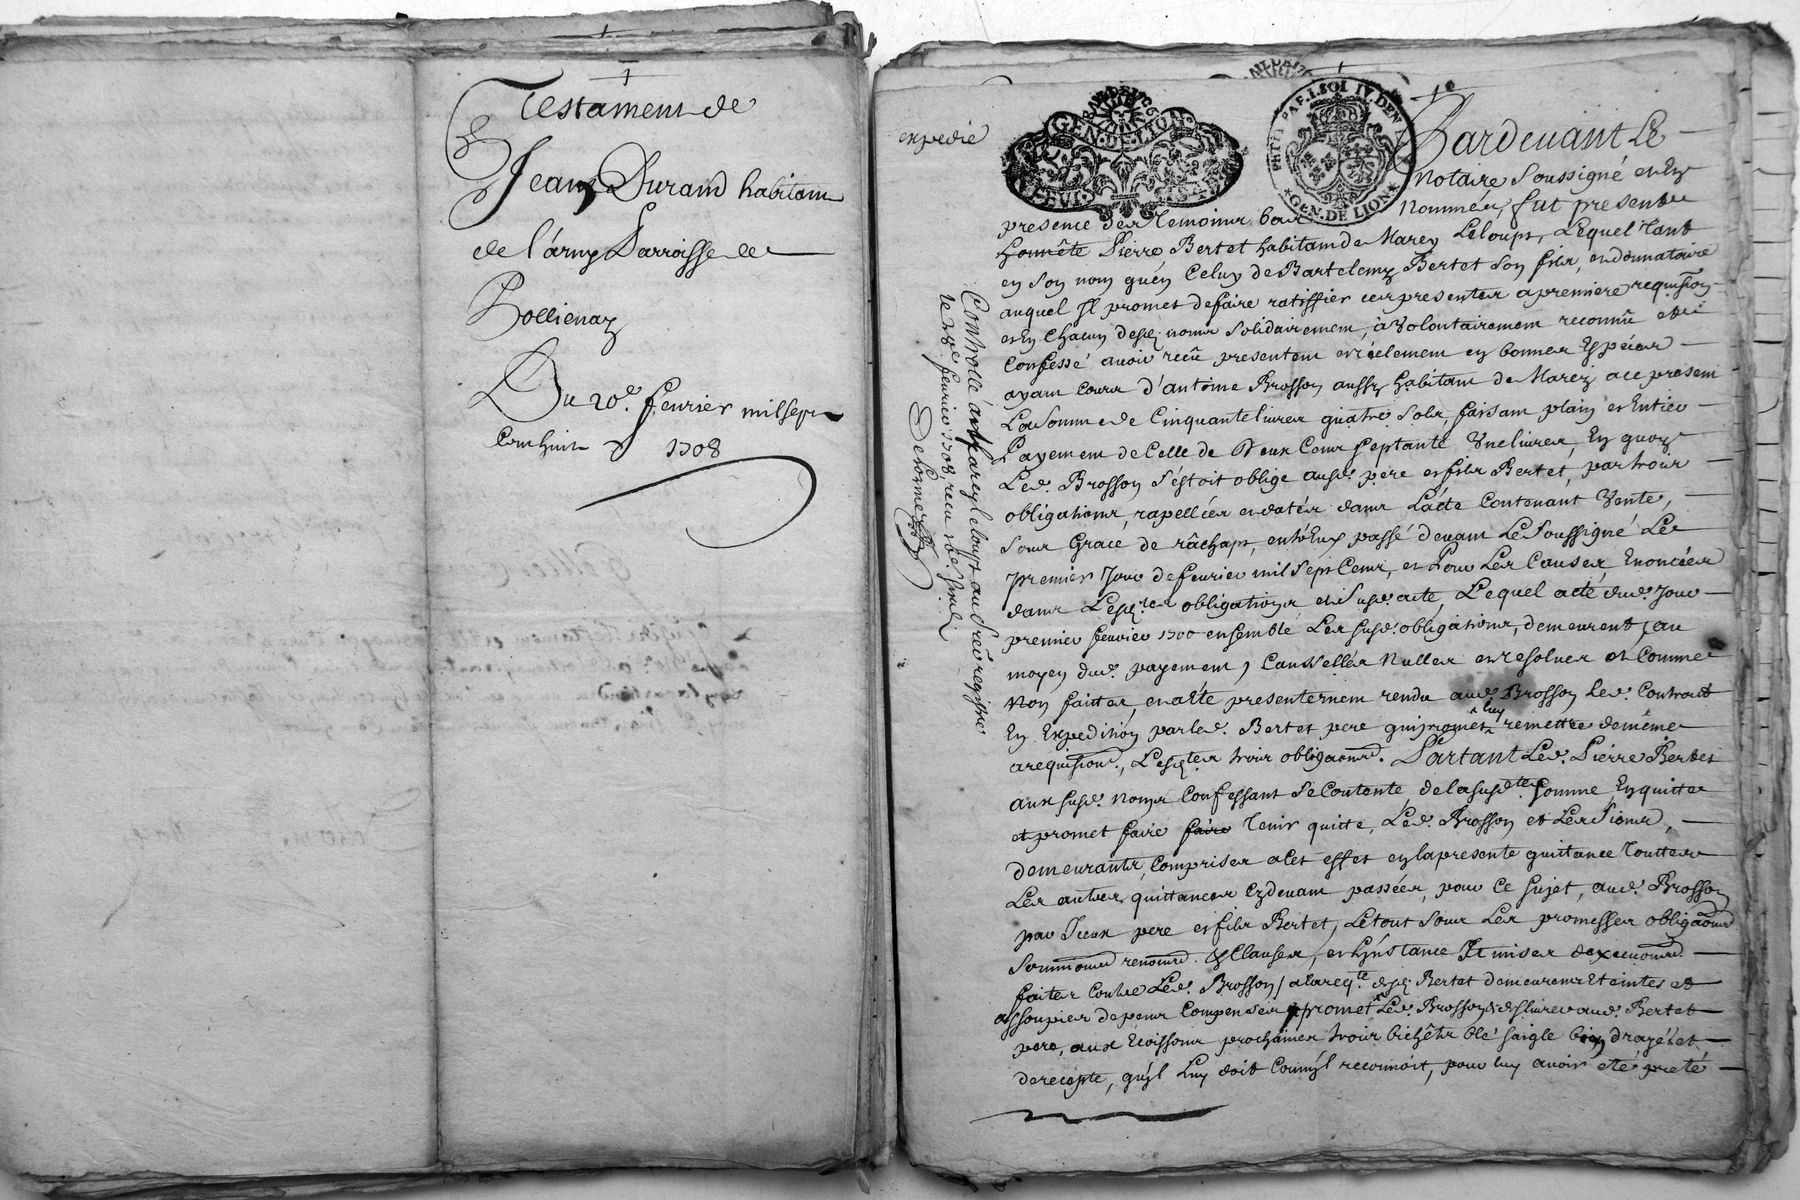 Testament de
Jean Durand habitant
de l'army Parroisse de
Pollienay
Du 20e. fevrier mil sept
cent huit 1708
expedié
GEN. DE LION
GEN. DE LION
Pardevant Le
notaire soussigné et En
presence des Temoins bas Nommés, fut present
honnête Pierre Bertet habitant de Marcy Leloups, Lequel tant
en son nom qu'en Celuy de Bartelemy Bertet son fils, et donnataire
auquel Il promet de faire ratiffier ces presentes a premiere requisition
et En Chacun desd. noms solidairement, à Volontairement reconnû et
Confessé avoir reçu presentem. et réelement en bonnes Espéces
ayant cours d'antoine Brosson aussy habitant de Marcy ace present
La somme de Cinquante livres quatre sols, faisant plain et Entier
Payement de Celle de Deux Cent septante Une livres, En quoy
Led. Brosson s'éstoit obligé ausd. pere et fils Bertet, par trois
obligations, rapellées et datés dans L'acte Contenant Vente,
sous Grace de râchapt, entr'Eux passé devant Le soussigné Le
premier Jour de fevrier mil sept Cent, et Pour Les Causes Enoncées
dans Lesd. obligations et susd. acte, Lequel acte dud. Jour
premier fevrier 1700 ensemble Les susd. obligations, demeurent, au
moyen dud. payement, Cancellés Nulles et resolues et Comme
Non faittes, et a êté presentement rendu aud. Brosson Led. Contract
En Expedition par led. Bertet pere qui promet luy remettre de même
a requisition, Lesd. trois obligaons. Partant Led. Pierre Bertet
aux susd. noms Confessant se Contente de la susdte somme En quitte
et promet faire faire tenir quitte, Led. Brosson et Les siens,
demeurants, Comprises a Cet effet en la presente quittance Touttes
Les autres quittances Cydevant passées, pour Ce sujet, aud. Brosson
par Iceux pere et fils Bertet, Le tout sous Les promesses obligaons
renons. & Clauses, et Instance
faites Contre Led. Brosson, a la reqte. desd. Bertet demeurent Eteintes et
assoupies depens Compensés, promet Led. Brosson delivrer aud. Bertet
pere, aux Moissons prochaines trois bichêts blé saigle bien drayé et
de recepte, qu'il Luy doit Comm'il reconnoit, pour luy avoir été preté
Controllé a Marcy le loup au 3e registre
le 28e. fevrier 1708, reçu